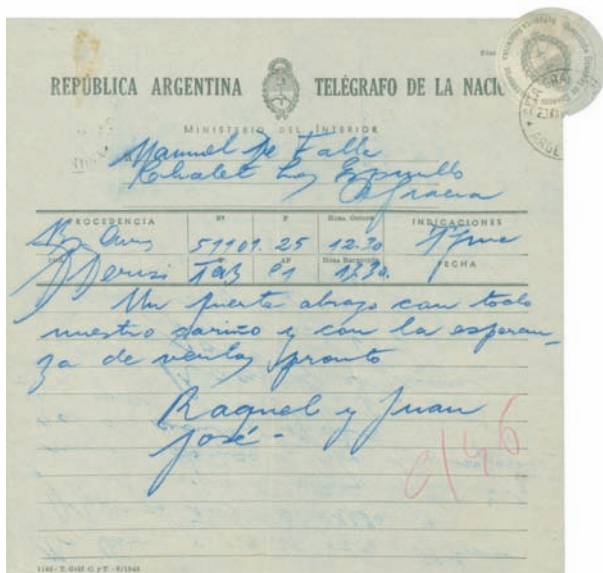 REPÚBLICA ARGENTINA TELÉGRAFO DE LA NACI
MINISTERIO DEL INTERIOR
Manuel De Falla
Chalet Los Espinillo
A Gracia
PROCEDENCIA Nº P HORA ORIGEN INDICACIONES
Bs Aires 51101 25 12.30
AP HORA RECEPCIÓN FECHA
13.30.
Un fuerte abrazo con todo
nuestro cariño y con la esperan-
za de verlos pronto
Raquel y Juan
José -